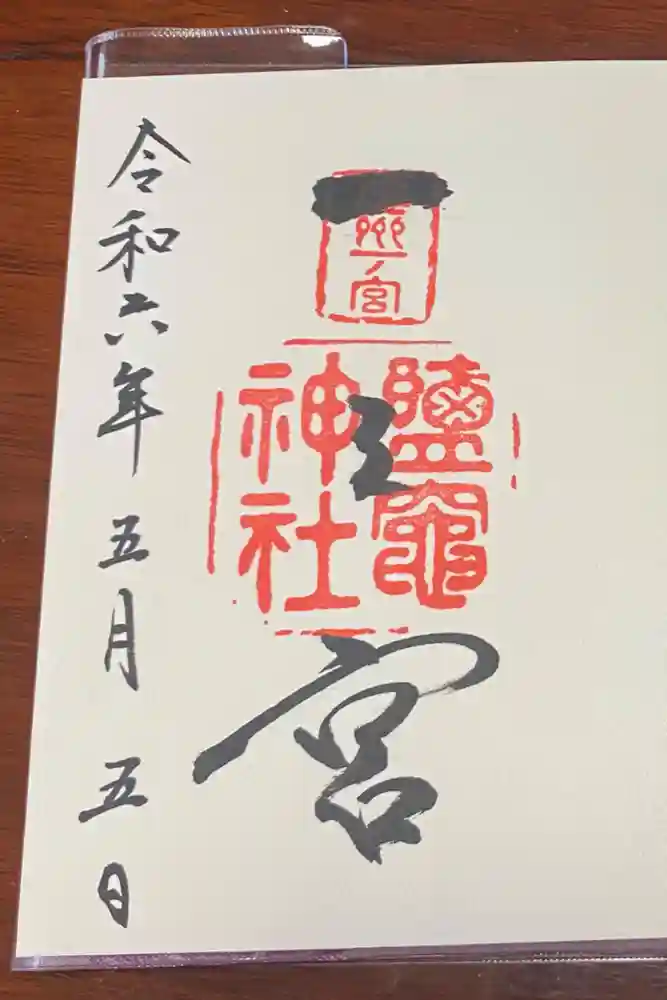 一之宮
州一ノ宮
鹽竈
神社
令和六年五月五日